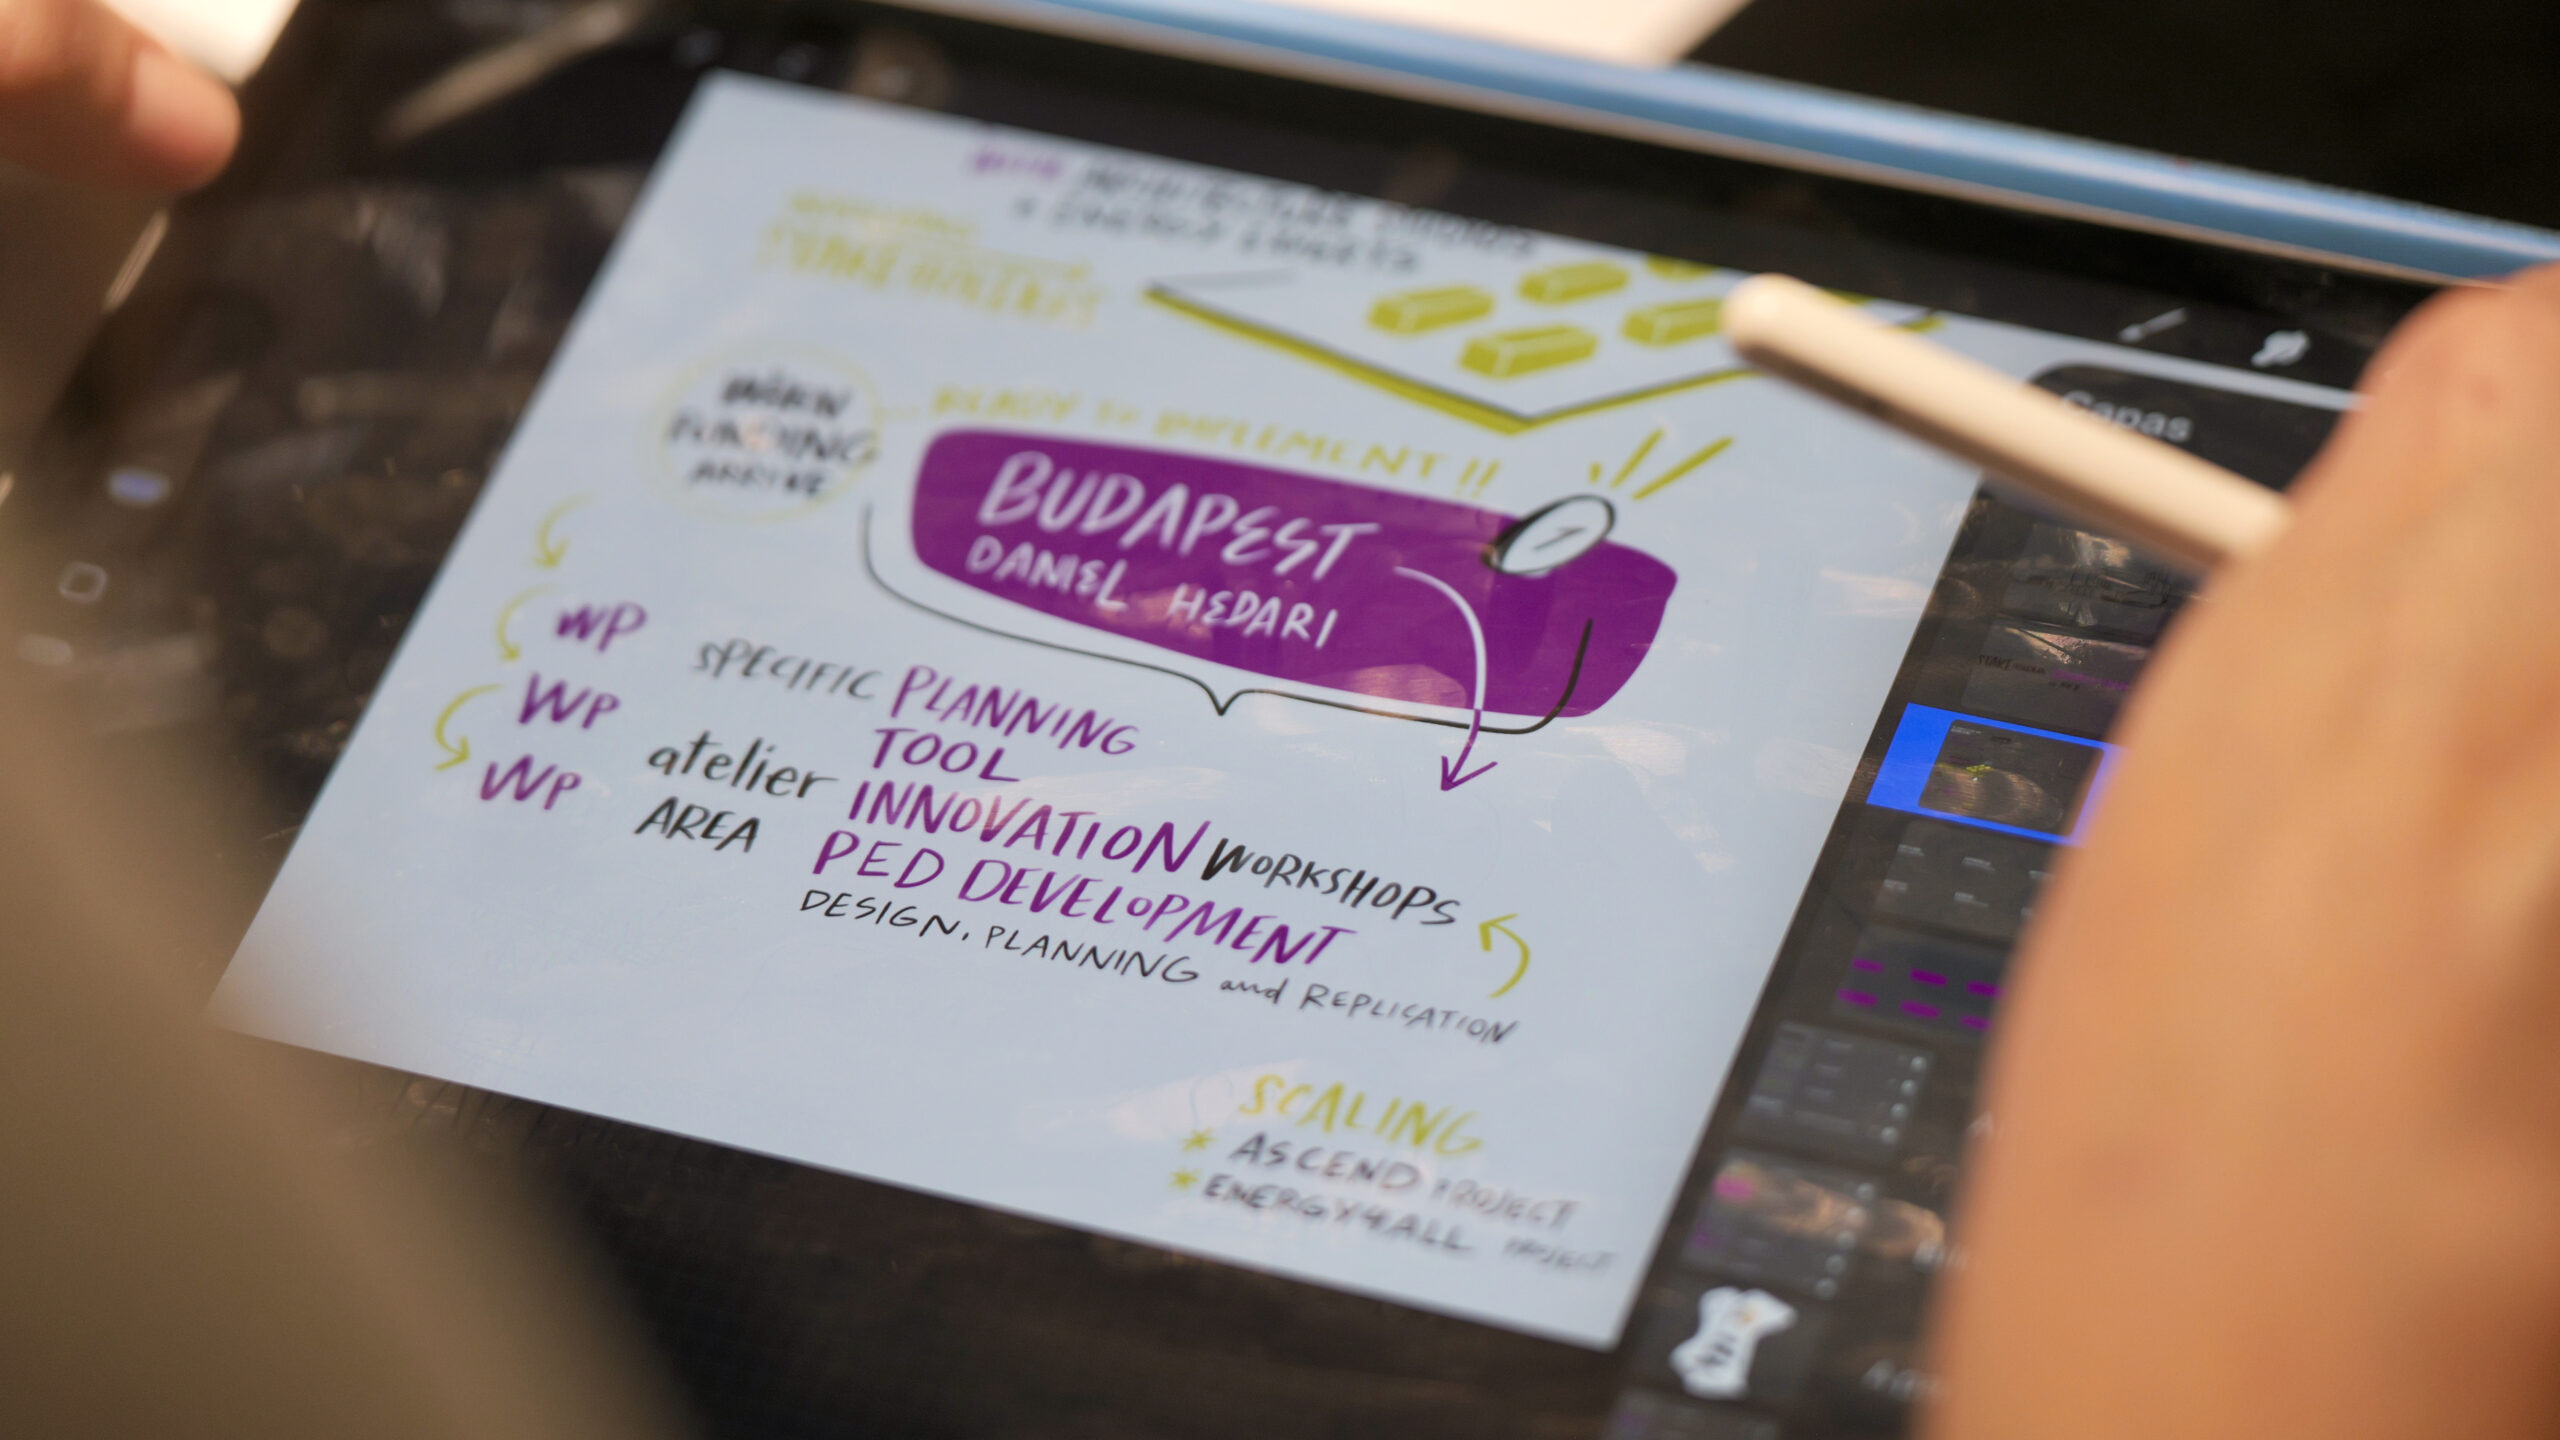 & ENERGY
STAKEHOLDERS
WHEN
FUNDING
ARRIVE
READY to IMPLEMENT!!
BUDAPEST
DANIEL HEDARI
WP
WP
WP
SPECIFIC PLANNING
TOOL
atelier INNOVATION WORKSHOPS
AREA PED DEVELOPMENT
DESIGN, PLANNING and REPLICATION
SCALING
* ASCEND PROJECT
* ENERGY4ALL PROJECT
Capas